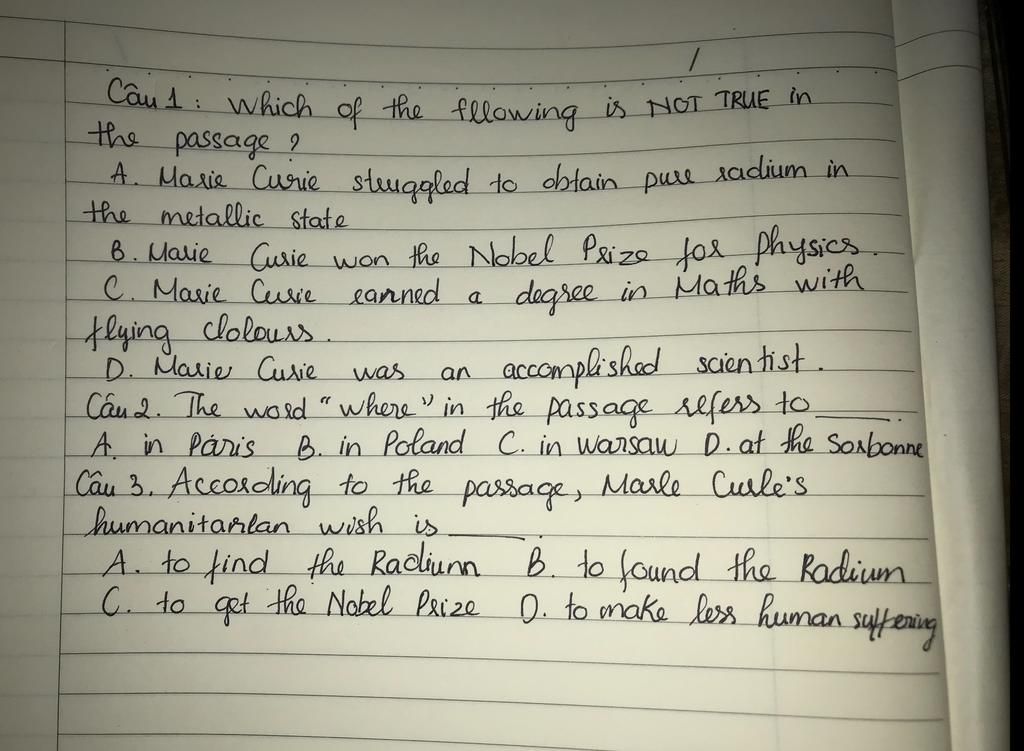 Câu 1 : Which of the fllowing is NOT TRUE in
the passage ?
A. Marie Curie struggled to obtain pure radium in
the metallic state
B. Marie Curie won the Nobel Prize for Physics.
C. Marie Curie earned a degree in Maths with
flying Colours.
D. Marie Curie was an accomplished scientist.
Câu 2. The word "where" in the passage refers to ____.
A. in Paris B. in Poland C. in Warsaw D. at the Sorbonne
Câu 3. According to the passage, Marie Curie's
humanitarian wish is ____.
A. to find the Radium B. to found the Radium
C. to get the Nobel Prize D. to make less human suffering